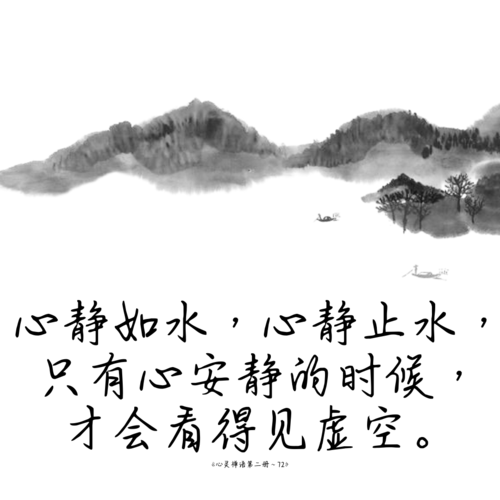 心静如水，心静止水，
只有心安静的时候，
才会看得见虚空。
《心灵禅语第二册～72》